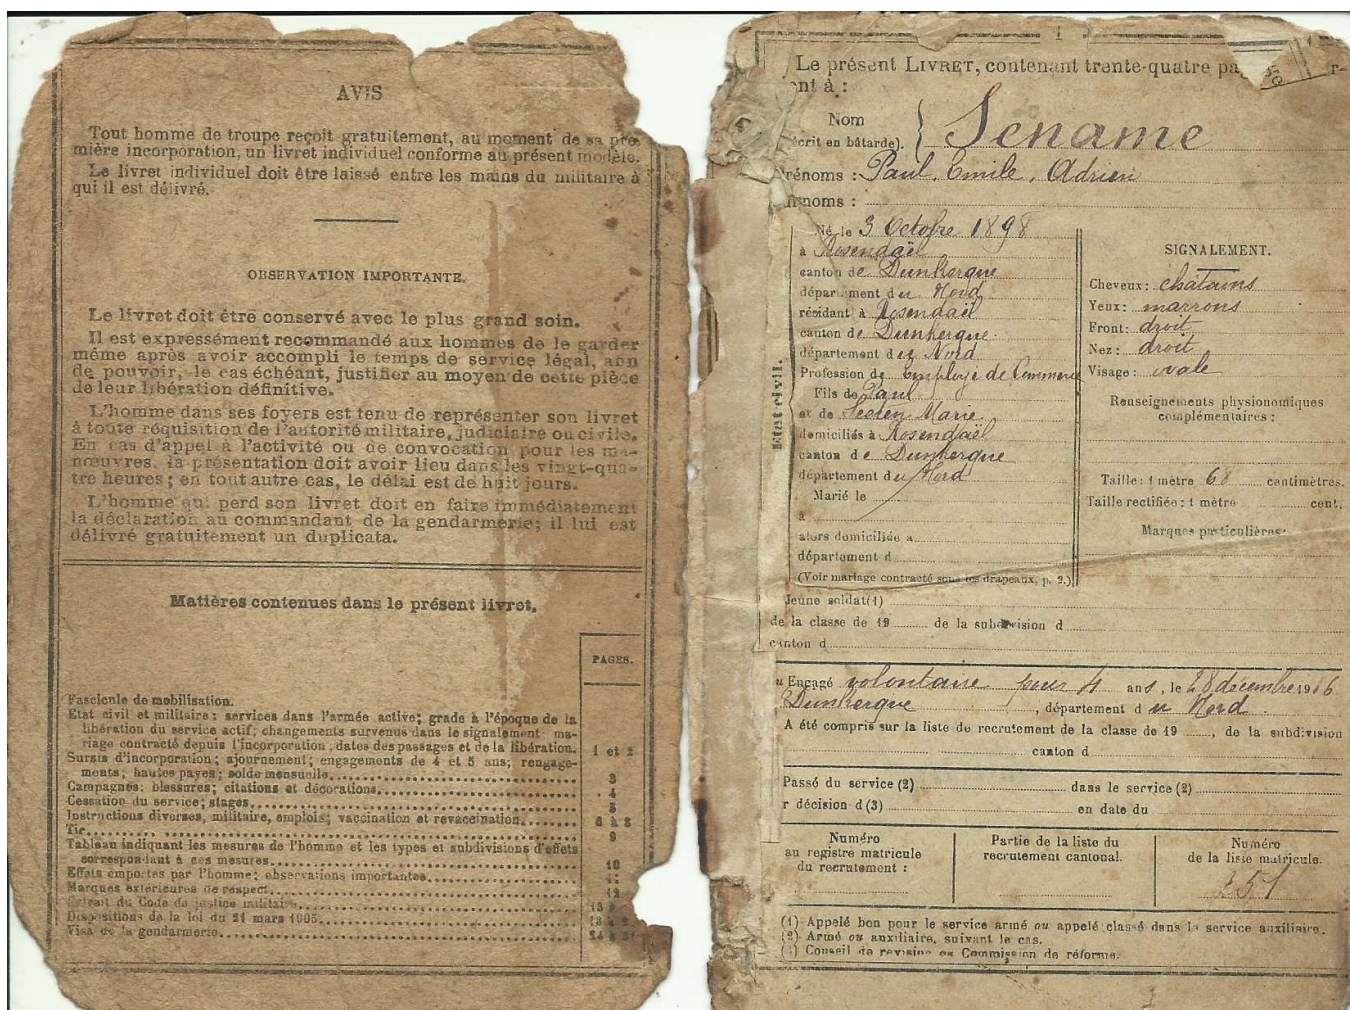 AVIS
Tout homme de troupe reçoit gratuitement, au moment de sa pre
mière incorporation, un livret individuel conforme au présent modèle.
Le livret individuel doit être laissé entre les mains du militaire à
qui il est délivré.
OBSERVATION IMPORTANTE.
Le livret doit être conservé avec le plus grand soin.
Il est expressément recommandé aux hommes de le garder
même après avoir accompli le temps de service légal, afin
de pouvoir, le cas échéant, justifier au moyen de cette pièce
de leur libération définitive.
L'homme dans ses foyers est tenu de représenter son livret
à toute réquisition de l'autorité militaire, judiciaire ou civile.
En cas d'appel à l'activité ou de convocation pour les ma-
nœuvres, la présentation doit avoir lieu dans les vingt-qua-
tre heures; en tout autre cas, le délai est de huit jours.
L'homme qui perd son livret doit en faire immédiatement
la déclaration au commandant de la gendarmerie; il lui est
délivré gratuitement un duplicata.
Matières contenues dans le présent livret.
PAGES.
Fascicule de mobilisation.
Etat civil et militaire; services dans l'armée active; grade à l'époque de la
libération du service actif; changements survenus dans le signalement; ma-
riage contracté depuis l'incorporation; dates des passages et de la libération. 1 et 2
Sursis d'incorporation; ajournement; engagements de 4 et 5 ans; rengage-
ments; hautes payes; solde mensuelle. 3
Campagnes; blessures; citations et décorations. 4
Cessation du service; stages. 5
Instructions diverses, militaire, emplois; vaccination et revaccination. 6 à 8
Tir. 9
Tableau indiquant les mesures de l'homme et les types et subdivisions d'effets
correspondant à ces mesures. 10
Effets emportés par l'homme; observations importantes. 11
Marques extérieures de respect. 12
Extrait du Code de justice militaire. 13
Dispositions de la loi du 21 mars 1905.
Visa de la gendarmerie.
1
Le présent LIVRET, contenant trente-quatre pa
nt à :
Nom
écrit en bâtarde). Sename
rénoms : Paul, Emile, Adrien
rnoms :
Etat civil.
Né le 3 Octobre 1898
à Rosendaël
canton de Dunkerque
département du Nord
résidant à Rosendaël
canton de Dunkerque
département du Nord
Profession de Employé de Commerce
Fils de Paul
et de Marie
domiciliés à Rosendaël
canton de Dunkerque
département du Nord
Marié le
à
alors domiciliée à
département d
(Voir mariage contracté sous les drapeaux, p. 2.)
SIGNALEMENT.
Cheveux: châtains
Yeux: marrons
Front: droit
Nez: droit
Visage: ovale
Renseignements physionomiques
complémentaires :
Taille: 1 mètre 68 centimètres.
Taille rectifiée: 1 mètre cent.
Marques particulières:
Jeune soldat (1)
de la classe de 19 de la subdivision d
canton d
Engagé volontaire pour 4 ans, le 28 décembre 1916
Dunkerque, département du Nord.
A été compris sur la liste de recrutement de la classe de 19 , de la subdivision
canton d
Passé du service (2) dans le service (2)
r décision d (3) en date du
Numéro
au registre matricule
du recrutement :
Partie de la liste du
recrutement cantonal.
Numéro
de la liste matricule.
(1) Appelé bon pour le service armé ou appelé classé dans le service auxiliaire.
(2) Armé ou auxiliaire, suivant le cas.
(3) Conseil de révision ou Commission de réforme.